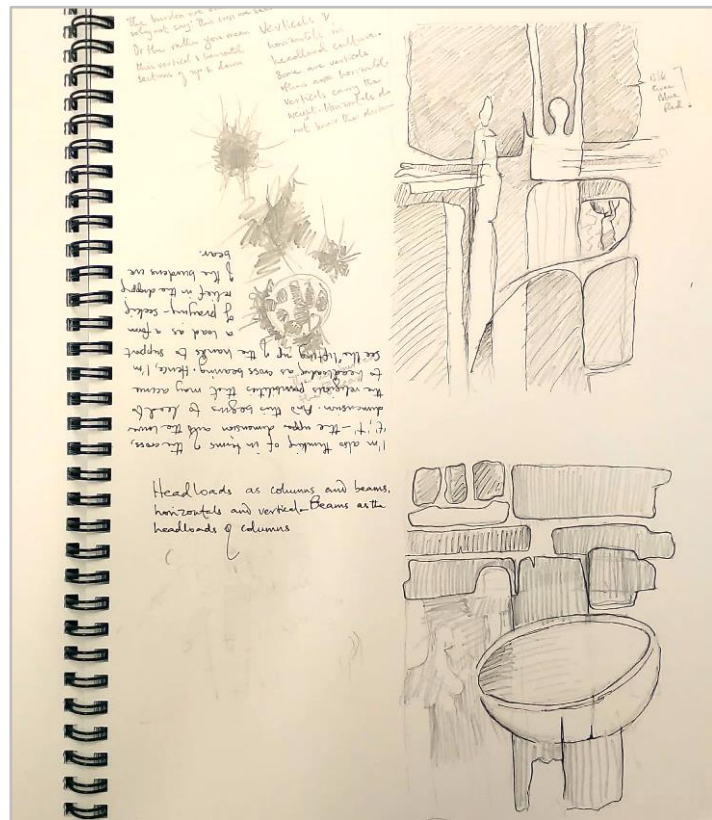 The burden are
why not say: this
Or then rather you mean
this vertical & beneath
sections of up & down
Verticals &
horizontals in
headload culture.
Some are verticals
others are horizontals
Verticals carry the
weight. Horizontals do
not
I'm also thinking of in terms of the cross,
't', 't' - the upper dimension and the lower
dimension. And this begins to lead to
the religious possibilities that may accrue
to headloading as cross bearing. Hence, I'm
see the "lifting up of the hands to support
a load as a form
of praying - seeking
relief in the
of the burdens we
bear.
Headloads as columns and beams,
horizontals and vertical - Beams as the
headloads of columns
Blue
Red